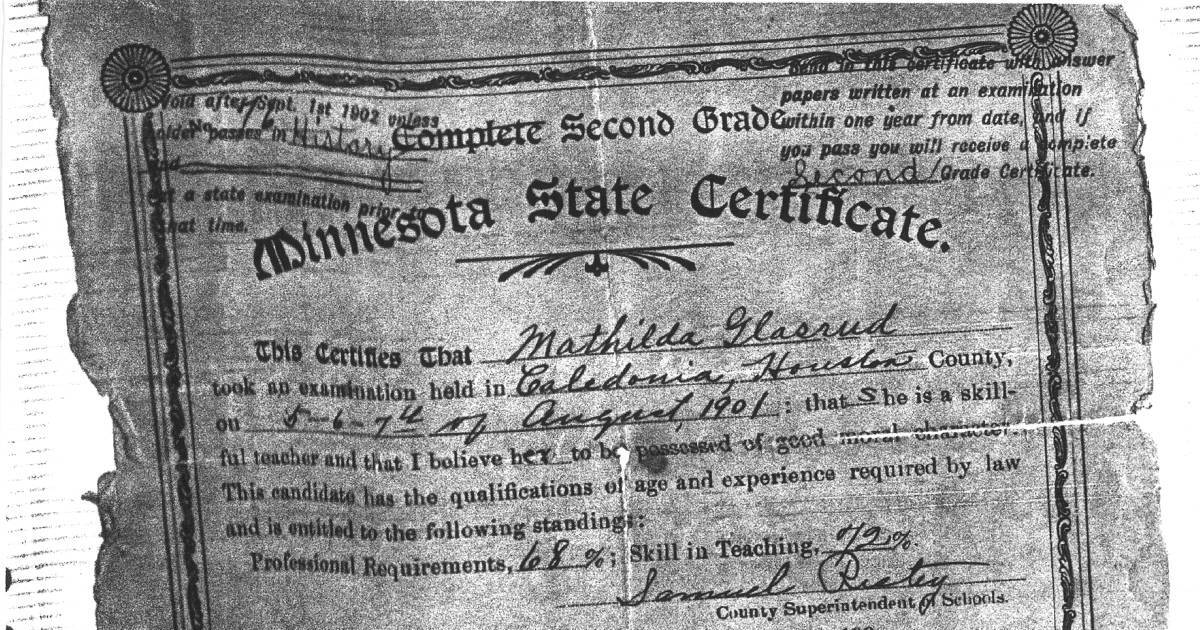 Void after Sept. 1st 1902 unless
holder passes in History
and
at a state examination prior to
that time.
Complete Second Grade
Send in this certificate with answer
papers written at an examination
within one year from date, and if
you pass you will receive a complete
Second Grade Certificate.
Minnesota State Certificate.
This Certifies That Mathilda Glasrud
took an examination held in Caledonia, Houston County,
on 5-6-7th of August, 1901: that She is a skill-
ful teacher and that I believe her to be possessed of good moral character.
This candidate has the qualifications of age and experience required by law
and is entitled to the following standings:
Professional Requirements, 68 %; Skill in Teaching, 72 %.
Samuel
County Superintendent of Schools.